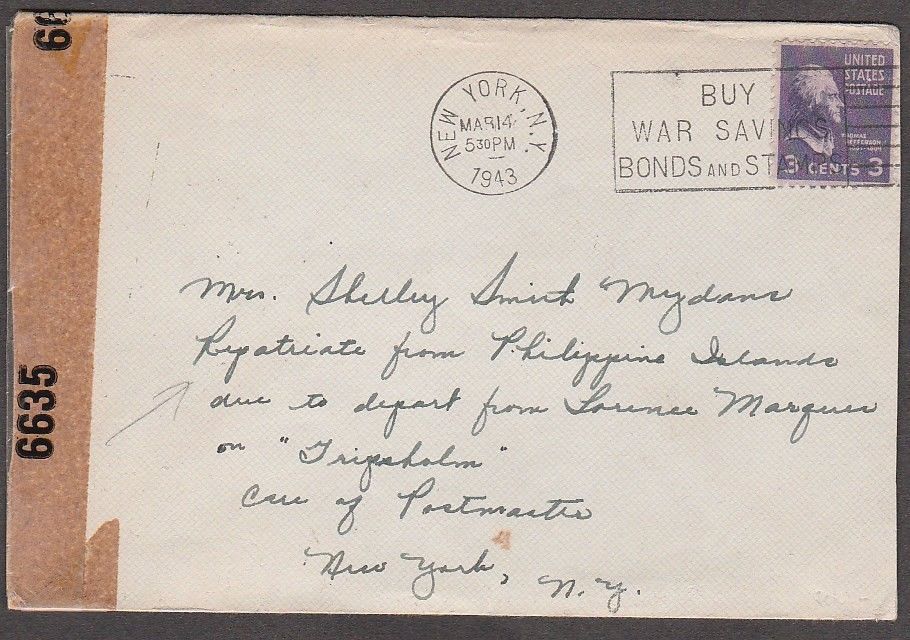 66
NEW YORK, N.Y.
MAR 14
5 30 PM
1943
BUY
WAR SAVINGS
BONDS AND STAMPS
UNITED
STATES
POSTAGE
THOMAS
JEFFERSON
3 CENTS 3
Mrs. Shelley Smith Mydans
Repatriate from Philippine Islands
due to depart from Lorence Marques
on "Gripsholm"
Care of Postmaster
New York, N.Y.
6635